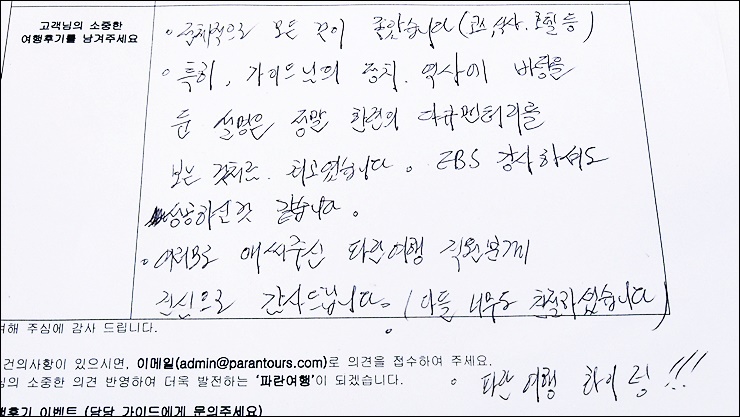 고객님의 소중한
여행후기를 남겨주세요
• 전체적으로 모든 것이 좋았습니다 (코스, 식사, 호텔 등)
• 특히, 가이드님의 정치, 역사에 바탕을
둔 설명은 정말 한편의 다큐멘터리를
보는 것처럼 최고였습니다. EBS 강사하셔도
성공하실것 같습니다.
• 여러모로 애써주신 파란여행 직원분께
진심으로 감사드립니다. (다들 너무도 친절하셨습니다)
여해 주심에 감사 드립니다.
건의사항이 있으시면, 이메일(admin@parantours.com)로 의견을 접수하여 주세요.
님의 소중한 의견 반영하여 더욱 발전하는 '파란여행'이 되겠습니다.
• 파란여행 화이팅!!!
행후기 이벤트 (담당 가이드에게 문의주세요)